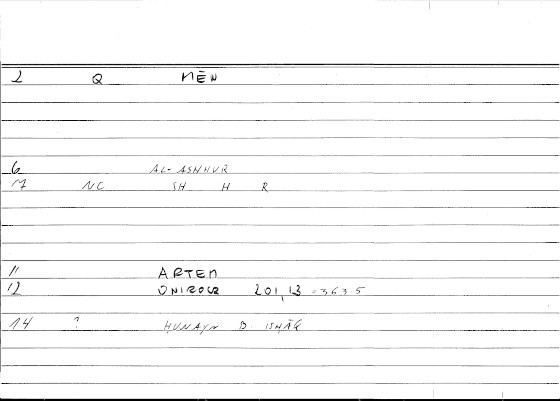 2 Q MĒN
6 AL-ASHHUR
7 NC SH H R
11 ARTEM
12 ONIROCR 201,13 = 363.5
14 ? HUNAYN B. ISHĀQ